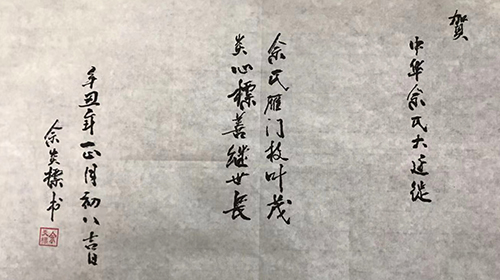 贺
中华余氏大迁徙
余氏雁门枝叶茂
炎心标善继世长
辛丑年正月初八吉日
余炎标书